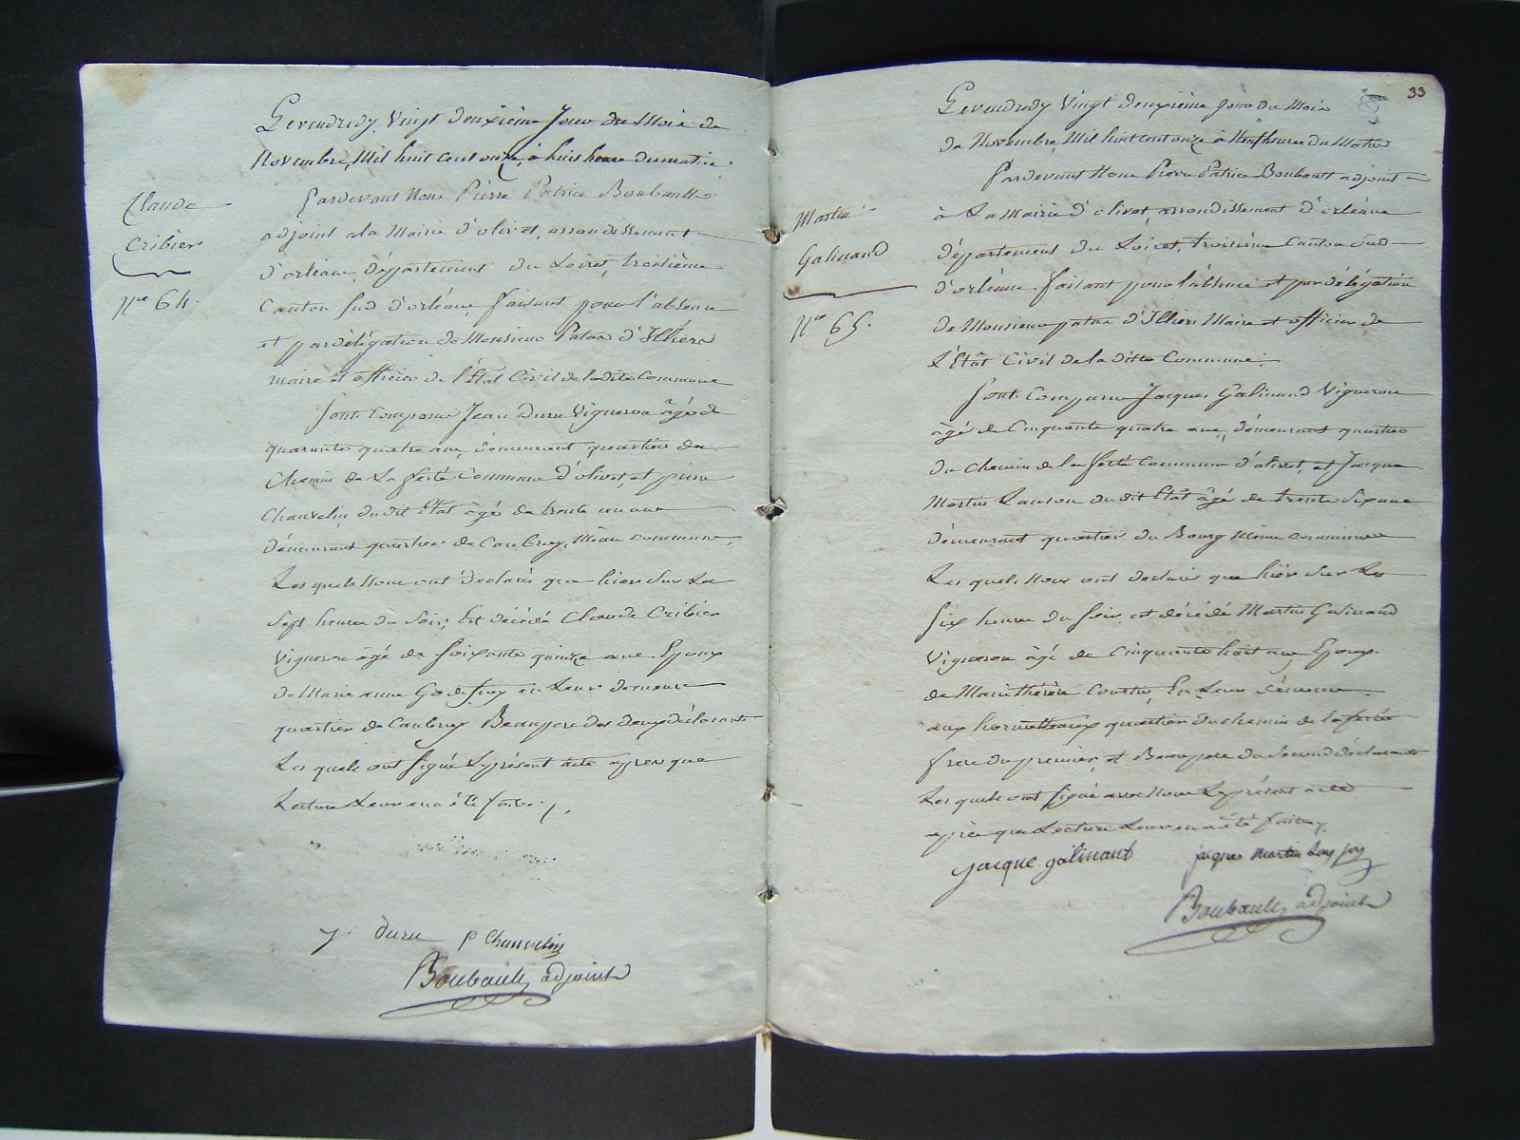 Claude
Cribier
Nro 64.
Le vendredy Vingt deuxième Jour du Mois de
Novembre, Mil huit cent onze, à huit heure dumatin.
Pardevant Nous Pierre Patrice Boubault
adjoint a la Mairie d'olivet, arrondissement
d'orléans, département du Loiret, troisième
Canton Sud d'orléans, faisant pour l'absence
et par délégation de Monsieur Patas d'Illiers
maire et officier de l'État Civil de ladite Commune
Sont Comparus Jean Duru Vigneron âgé de
quarante quatre ans, demeurant quartier du
Chemin de La ferté Commune d'olivet, et pierre
Chauvelin du dit État âgé de trente un ans
démeurant quartier de Caubray, même commune,
Les quels Nous ont déclaré que hier Sur Les
Sept heures du Soir, Est décédé Claude Cribier
Vigneron âgé de Soixante quinze ans Epoux
de Marie anne Godefroy en Leur demeure
quartier de Caubray Beaupere des deux déclarants
Les quels ont signé Le présent acte apres que
Lecture Leur en a été faite.
J. duru P Chauvelin
Boubault, adjoint
33
Martin
Galinand
Nro 65.
Le vendredy Vingt deuxième jour du Mois
de Novembre, Mil huit cent onze à Neuf heures du Matin
Pardevant Nous Pierre Patrice Boubault adjoint
à La Mairie d'olivet arrondissement d'orléans
département du Loiret, troisième Canton Sud
d'orléans faisant pour l'absence et par délégation
de Monsieur patas d'Illiers Maire et officier de
L'Etât Civil de la ditte Commune.
Sont Comparus Jacques Galinand Vigneron
âgé de Cinquante quatre ans, démeurant quartier
du Chemin de la ferté Commune d'olivet, et Jacques
Martin Lanson du dit Etât âgé de trente Six ans
démeurant quartier du Bourg même commune
Les quels Nous ont déclaré que hier Sur Les
Six heures du Soir est décédé Martin Galinand
Vigneron âgé de Cinquante huit ans Epoux
de Marie thérèse Courtin, En Leur démeure
aux quartier du chemin de la ferté
frere du premier, et Beaupere du Second déclarants
Les quels ont signé avec Nous Le présent acte
après que Lecture Leur en a été faite.
jacque galinant jaques martin
Boubault, adjoint